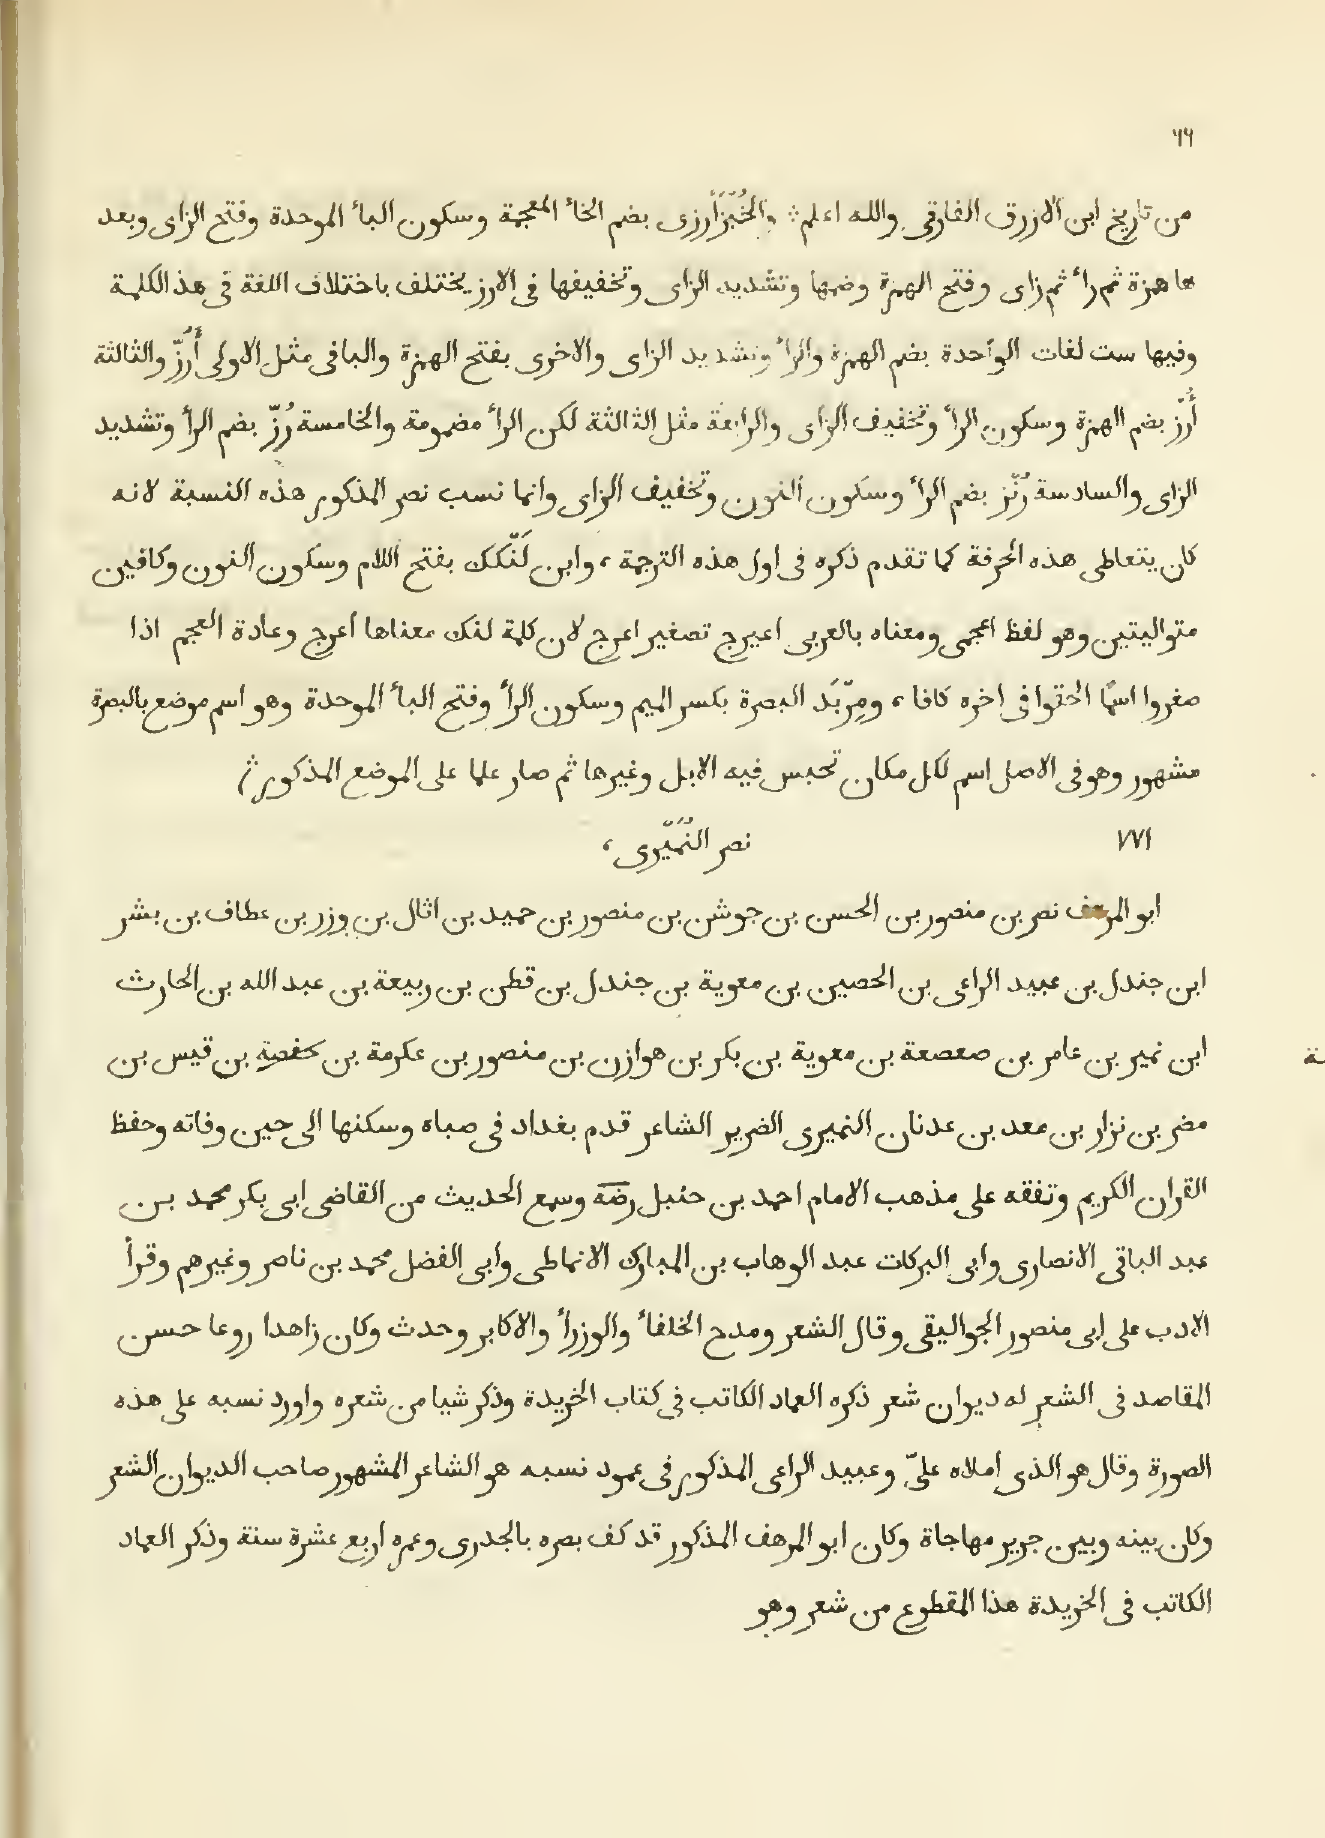 ٦٩
من تاريخ ابن الازرق الفارقى والله اعلم والخُبْزَأَرزى بضم الخاء المعجمة وسكون الباء الموحدة وفتح الزاى وبعد
ها همزة ثم راء ثم زاى وفتح الهمزة وضمها وتشديد الزاى وتخفيفها فى الارز يختلف باختلاف اللغة فى هذ الكلمة
وفيها ست لغات الواحدة بضم الهمزة والراء وتشديد الزاى والاخرى بفتح الهمزة والباقى مثل الاولى أَرُزّ والثالثة
أُرْز بضم الهمزة وسكون الراء وتخفيف الزاى والرابعة مثل الثالثة لكن الراء مضمومة والخامسة رُزّ بضم الراء وتشديد
الزاى والسادسة رُنْز بضم الراء وسكون النون وتخفيف الزاى وانما نسب نصر المذكور هذه النسبة لانه
كان يتعاطى هذه الحرفة كما تقدم ذكره فى اول هذه الترجمة، وابن لَنْكك بفتح اللام وسكون النون وكافين
متواليتين وهو لفظ اعجمى ومعناه بالعربى اعيرج تصغير اعرج لان كلمة لنك معناها اعرج وعادة العجم اذا
صغروا اسمًا الحقوا فى اخره كافا، ومِرْبَد البصرة بكسر الميم وسكون الراء وفتح الباء الموحدة وهو اسم موضع بالبصرة
مشهور وهو فى الاصل اسم لكل مكان تحبس فيه الابل وغيرها ثم صار علما على الموضع المذكور
٧٧١ نصر النُمَيْرى،
ابو المرهف نصر بن منصور بن الحسن بن جوشن بن منصور بن حميد بن اثال بن وزر بن عطاف بن بشر
ابن جندل بن عبيد الراعى بن الحصين بن معوية بن جندل بن قطن بن ربيعة بن عبد الله بن الحارث
ابن نمير بن عامر بن صعصعة بن معوية بن بكر بن هوازن بن منصور بن عكرمة بن بن قيس بن
مضر بن نزار بن معد بن عدنان النميرى الضرير الشاعر قدم بغداد فى صباه وسكنها الى حين وفاته وحفظ
القران الكريم وتفقه على مذهب الامام احمد بن حنبل رضه وسمع الحديث من القاضى ابى بكر محمد بن
عبد الباقى الانصارى وابى البركات عبد الوهاب بن المبارك الانماطى وابى الفضل محمد بن ناصر وغيرهم وقرأ
الادب على ابى منصور الجواليقى وقال الشعر ومدح الخلفاء والوزراء والاكابر وحدث وكان زاهدا روعا حسن
المقاصد فى الشعر له ديوان شعر ذكره العماد الكاتب فى كتاب الخريدة وذكر شيا من شعره واورد نسبه على هذه
الصورة وقال هو الذى املاه علىّ وعبيد الراعى المذكور فى عمود نسبه هو الشاعر المشهور صاحب الديوان الشعر
وكان بينه وبين جرير مهاجاة وكان ابو المرهف المذكور قد كف بصره بالجدرى وعمره اربع عشرة سنة وذكر العماد
الكاتب فى الخريدة هذا المقطوع من شعر وهو